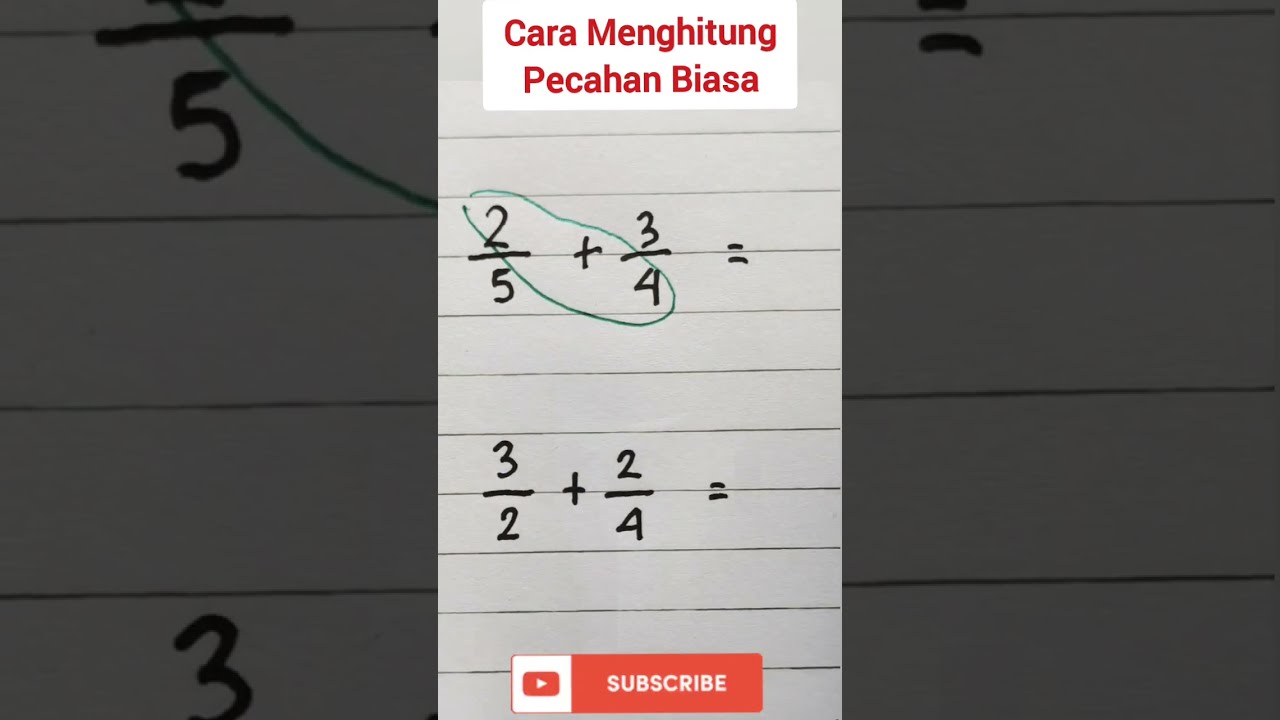 Cara Menghitung
Pecahan Biasa
2/5 + 3/4 =
3/2 + 2/4 =
SUBSCRIBE